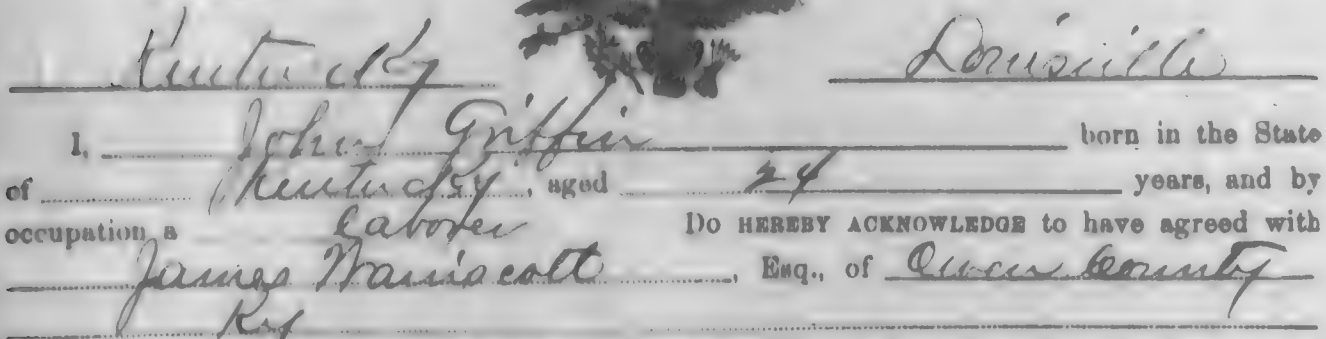 Kentucky Louisville
I, John Griffin born in the State
of Kentucky, aged 24 years, and by
occupation a Laborer Do HEREBY ACKNOWLEDGE to have agreed with
James , Esq., of Owen County
Ky